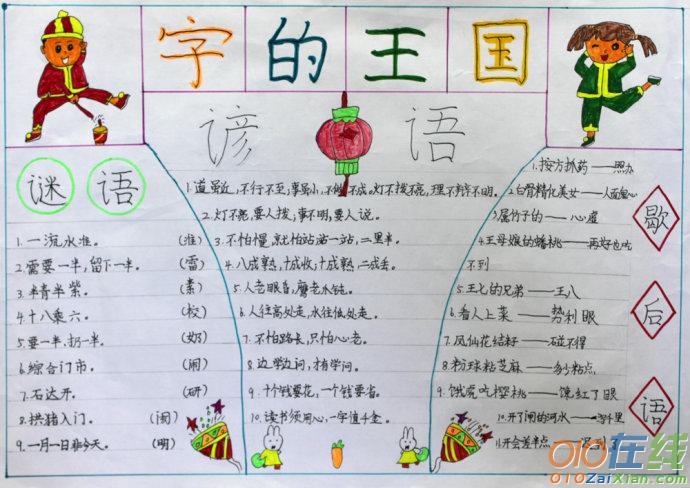 字的王国
谚语
谜语
1.一 水准。
2.需要一半,留下一半。 (雷)
3.半青半紫。 (素)
4.十八乘六。 (校)
5.要一半,扔一半。 (奶)
6.综合门市。 (闹)
7.石达开。 (研)
8.拱猪入门。
9.一月一日非今天。 (明)
1.道虽近,不行不至;事虽小,不做不成。灯不拨不亮,理不辩不明。
2.灯不亮,要人拨,事不明,要人说。
3.不怕慢,就怕站站一站,二里半。
4.八成熟,十成收;十成熟,二成丢。
5.人老眼昏,磨老水钝。
6.人往高处走,水往低处走。
7.不怕路长,只怕心老。
8.边学边问,才有学问。
9.十个钱要花,一个钱要省。
10.读书须用心,一字值千金。
歇后语
1.按方抓药——照办
2.白骨精化美女——人面鬼心
3.属竹子的——心虚
4.王母娘娘的蟠桃——再好也吃
不到
5.王七的兄弟——王八
6.看人上菜——势利眼
7.凤仙花结籽——碰不得
8.粉球粘芝麻——多少粘点
9.饿虎吃樱桃——馋红了眼
10.开了闸的河水——一泻千里
11.开会差半点——迟到了
010在线
010ZaiXian.com